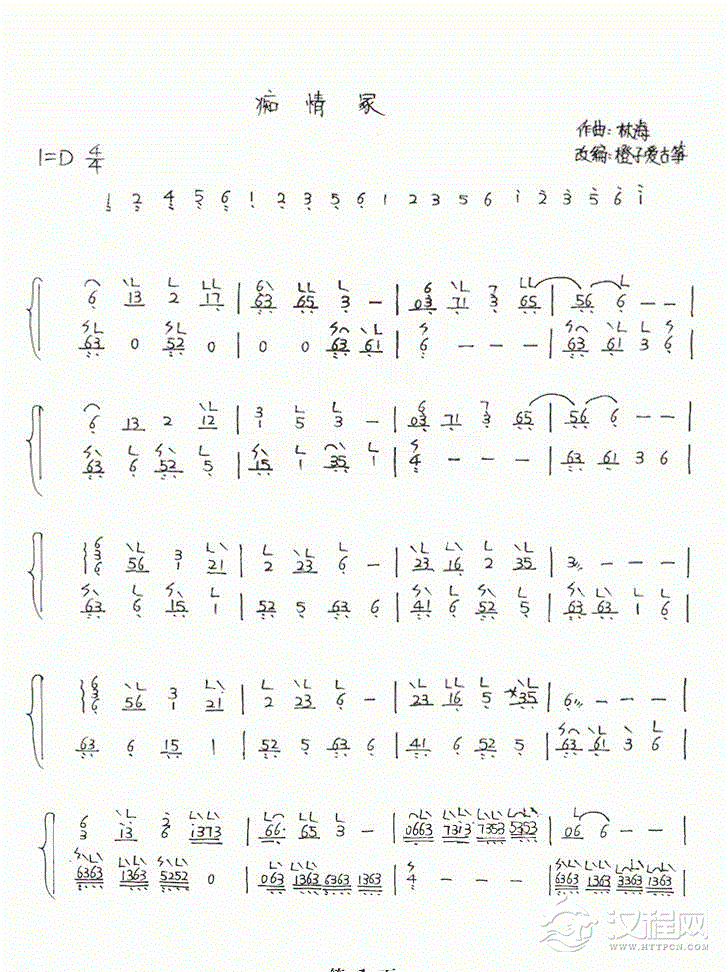 痴情冢
作曲:林海
1=D 4/4
改编:橙子爱古筝
1 2 4 5 6 1 2 3 5 6 1 2 3 5 6 1 2 3 5 6 1
6 13 2 17 | 63 65 3 — | 03 71 3 65 | 56 6 — — |
63 0 52 0 | 0 0 63 61 | 6 — — — | 63 61 3 6 |
6 13 2 12 | 1 5 3 — | 03 71 3 65 | 56 6 — — |
63 6 52 5 | 15 1 35 1 | 4 — — — | 63 61 3 6 |
56 1 21 | 2 23 6 — | 23 16 2 35 | 3 — — |
63 6 15 1 | 52 5 63 6 | 41 6 52 5 | 63 63 1 6 |
56 1 21 | 2 23 6 — | 23 16 5 35 | 6 — — |
63 6 15 1 | 52 5 63 6 | 41 6 52 5 | 63 61 3 6 |
3 13 6 1373 | 66. 65 3 — | 0663 7313 7353 5353 | 06 6 — — |
6363 1363 5252 0 | 063 1363 6363 1363 | 4 — — — | 6363 1363 3363 1363 |
汉程网
HTTP://WWW.HTTPCN.COM